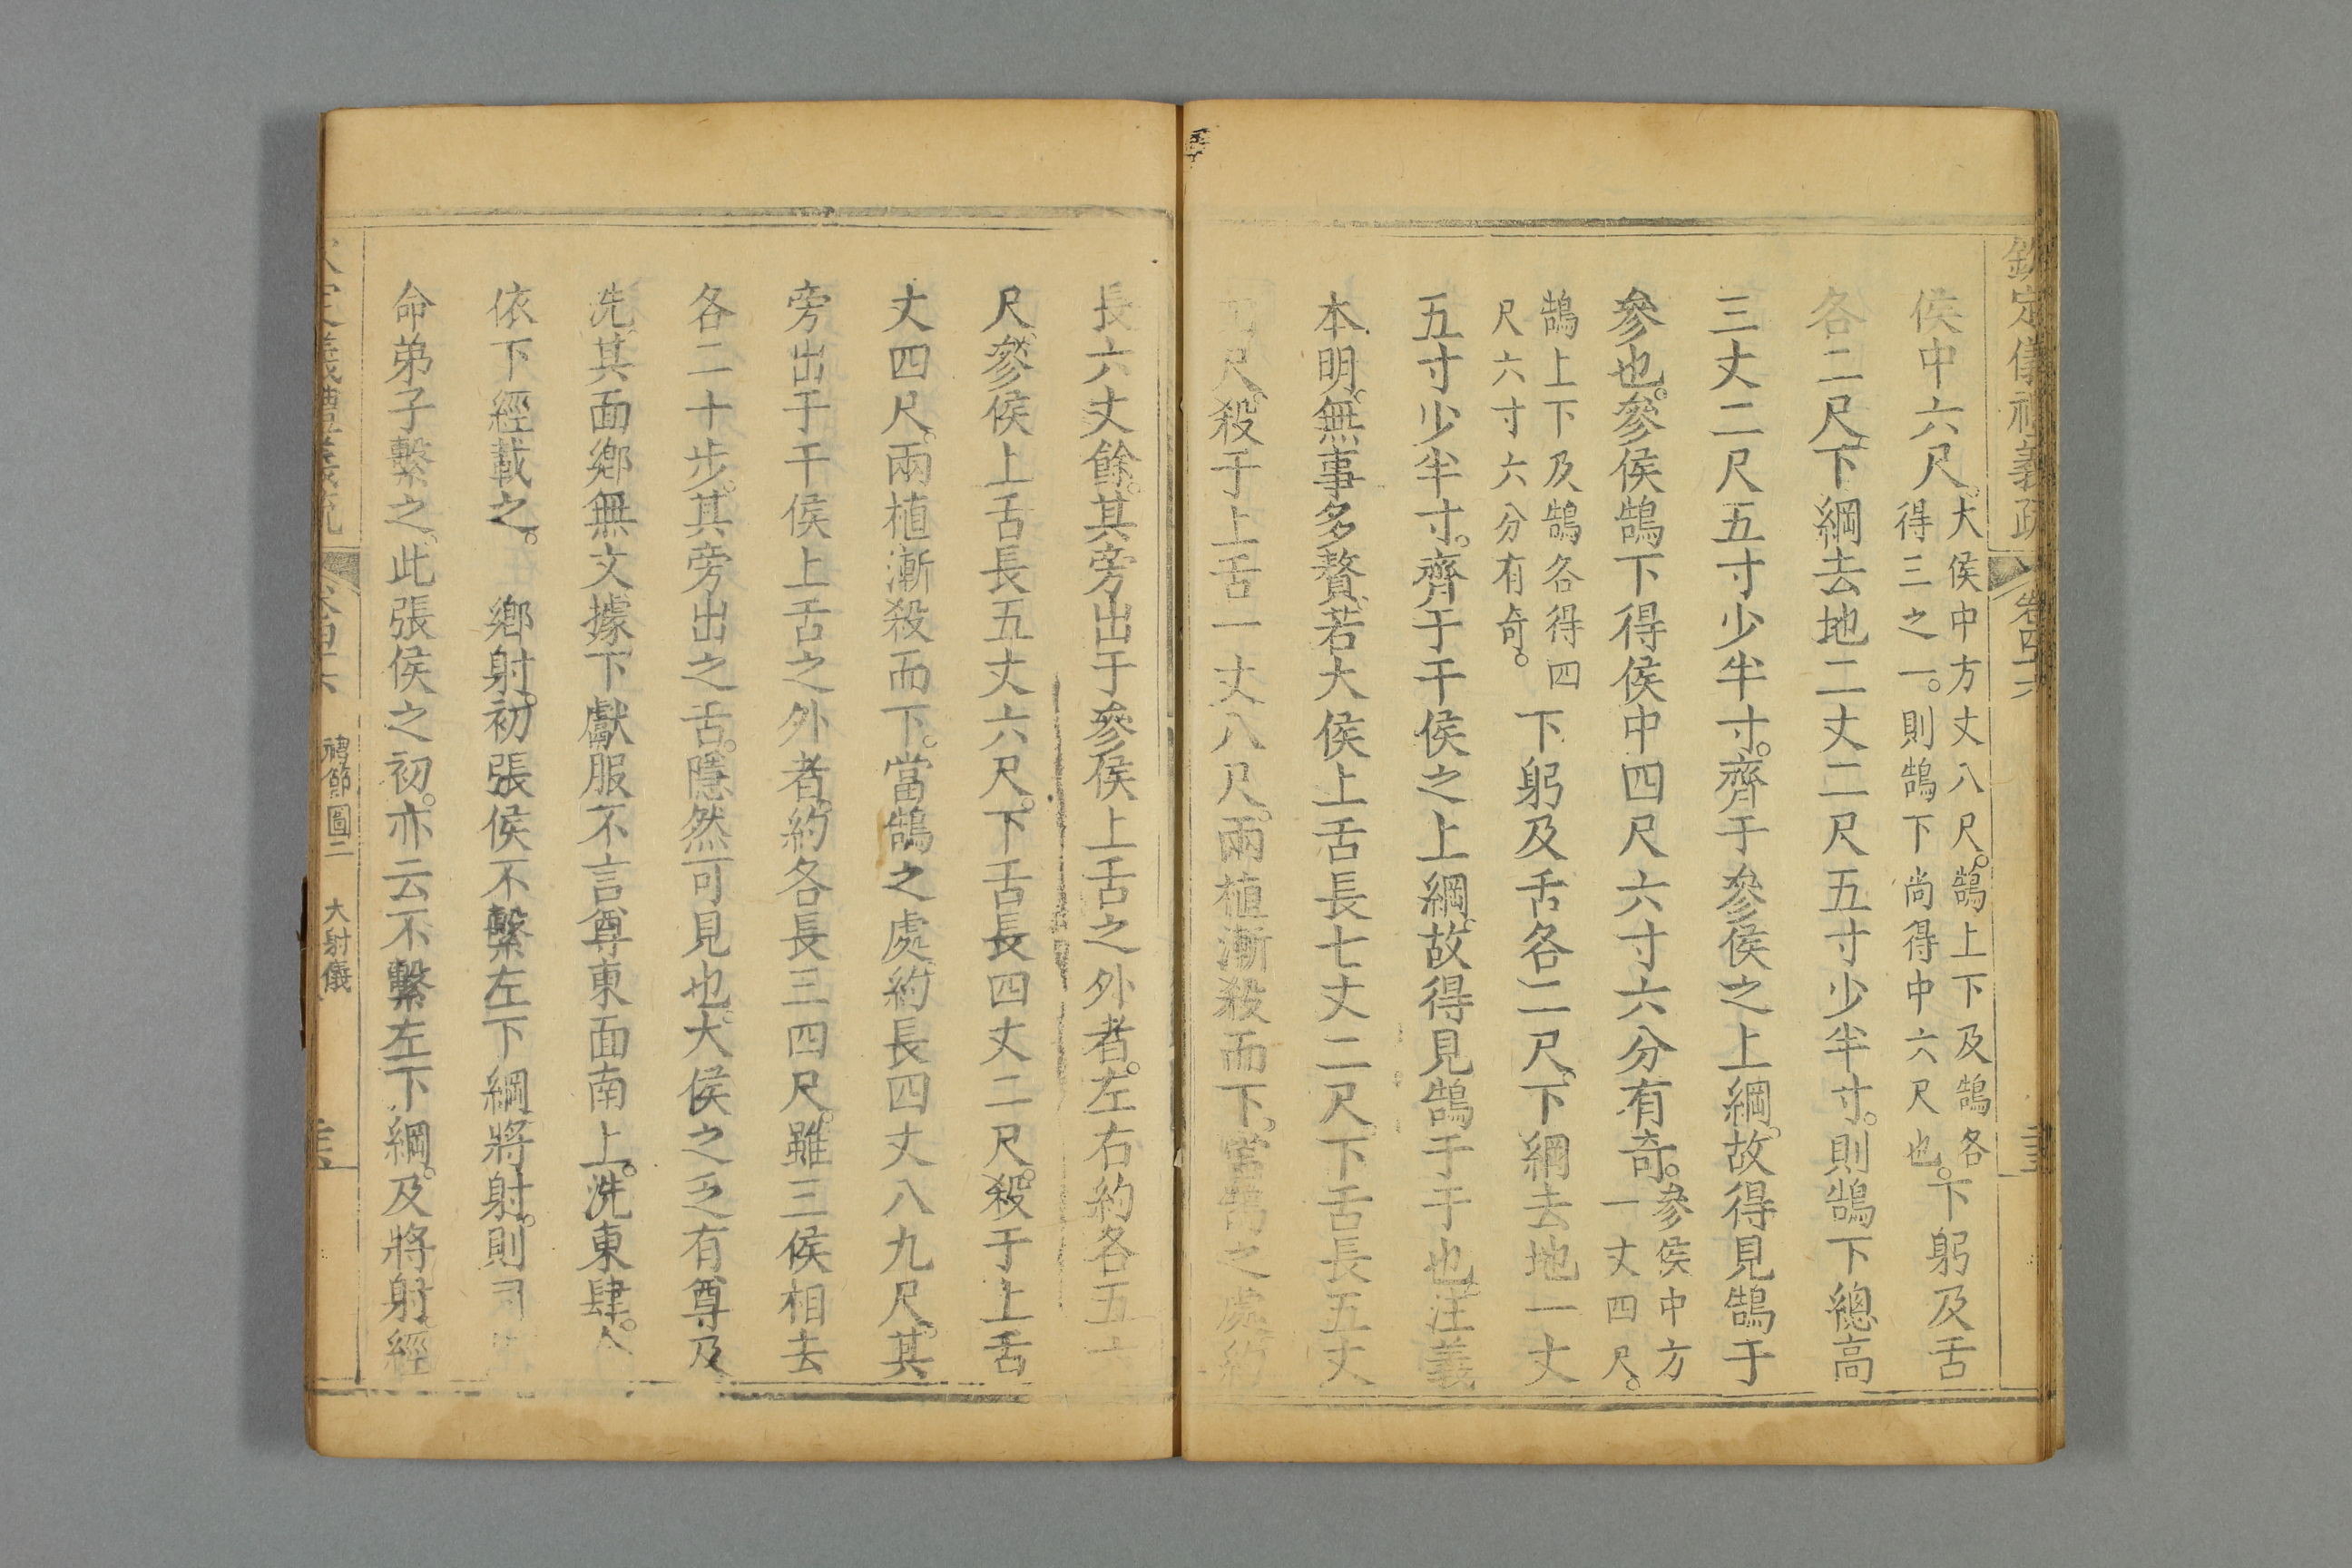 欽定儀禮義疏 卷四十六
侯中六尺。大侯中方丈八尺。鵠上下及鵠各得三之一。則鵠下尚得中六尺也。下躬及舌
各二尺。下綱去地二丈二尺五寸少半寸。則鵠下總高
三丈二尺五寸少半寸。齊于參侯之上綱。故得見鵠于
參也。參侯鵠下得侯中四尺六寸六分有奇。參侯中方一丈四尺。
鵠上下及鵠各得四尺六寸六分有奇。下躬及舌各二尺。下綱去地一丈
五寸少半寸。齊于干侯之上綱。故得見鵠于干也。注義
本明。無事多贅。若大侯上舌長七丈二尺。下舌長五丈
尺。殺于上舌一丈八尺。兩植漸殺而下。當鵠之處約
長六丈餘。其旁出于參侯上舌之外者。左右約各五六
尺。參侯上舌長五丈六尺。下舌長四丈二尺。殺于上舌
丈四尺。兩植漸殺而下。當鵠之處。約長四丈八九尺。其
旁出于干侯上舌之外者。約各長三四尺。雖三侯相去
各二十步。其旁出之舌。隱然可見也。大侯之乏有尊及
洗。其面鄉無文。據下獻服不言尊東面南上。洗東肆。今
依下經載之。 鄉射。初張侯不繫左下綱。將射。則司
命弟子繫之。此張侯之初。亦云不繫左下綱。及將射。經
儀禮義疏 卷四十六 禮節圖二 大射儀